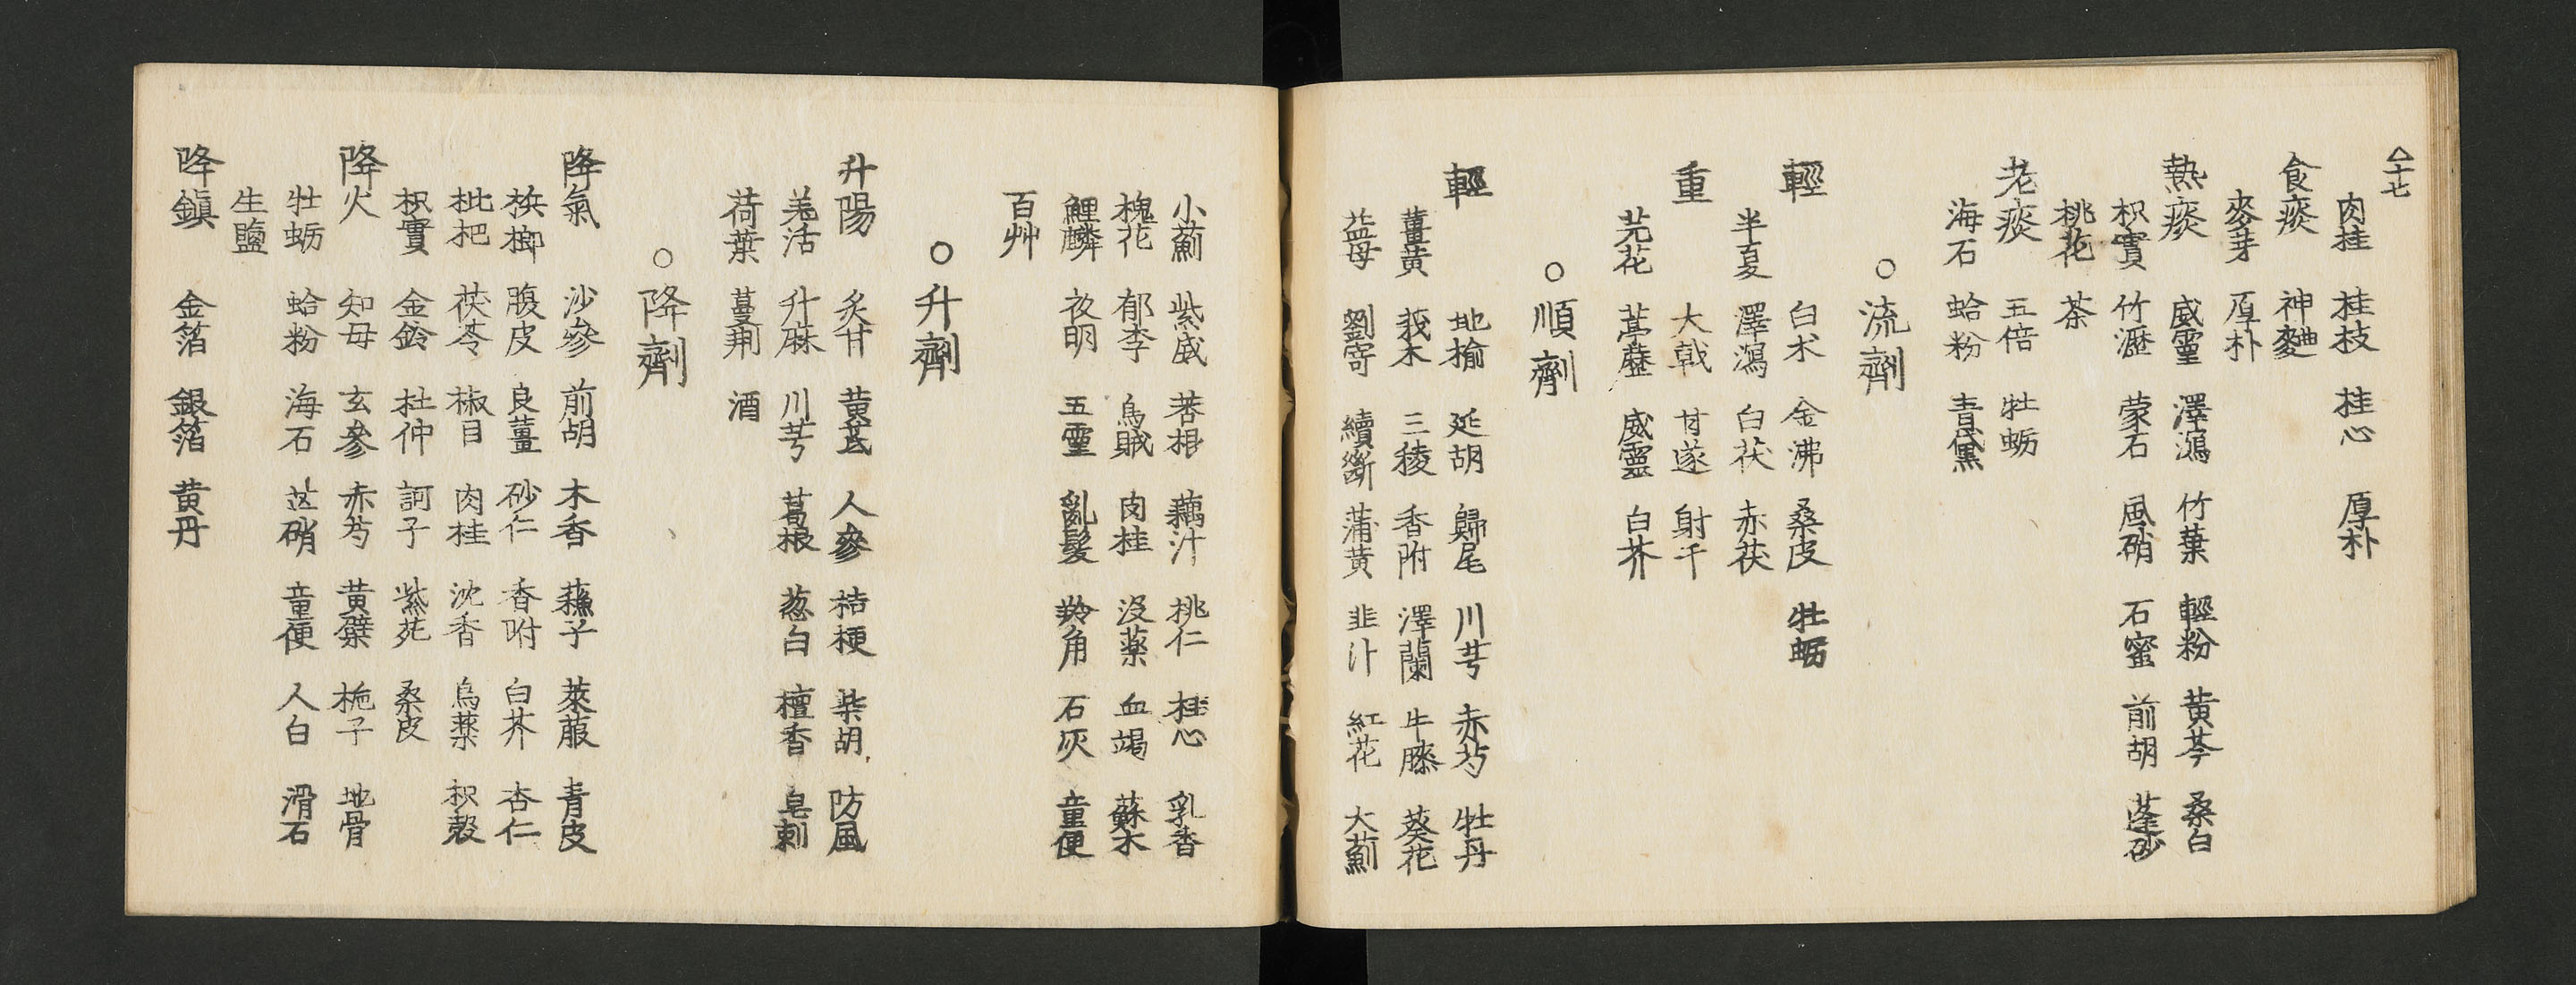 △十七
肉桂 桂枝 桂心 厚朴
食痰 神麴
麥芽 厚朴
熱痰 威靈 澤瀉 竹葉 輕粉 黄芩 桑白
枳實 竹瀝 蒙石 風硝 石蜜 前胡 蓬砂
桃花 茶
老痰 五倍 牡蛎
海石 蛤粉 青黛
○流劑
輕 白朮 金沸 桑皮 牡蛎
半夏 澤瀉 白茯 赤茯
重 大戟 甘遂 射干
芫花 葶藶 威靈 白芥
○順劑
輕 地榆 延胡 歸尾 川芎 赤芍 牡丹
薑黄 莪朮 三稜 香附 澤蘭 牛膝 葵花
益母 劉寄 續斷 蒲黄 韭汁 紅花 大薊
小薊 紫威 茜根 藕汁 桃仁 桂心 乳香
槐花 郁李 烏賊 肉桂 没薬 血竭 蘇木
鯉麟 夜明 五靈 亂髮 羚角 石灰 童便
百艸
○升劑
升陽 炙甘 黄芪 人參 桔梗 柴胡 防風
羌活 升麻 川芎 葛根 葱白 檀香 皂刺
荷葉 蔓荊 酒
○降劑
降氣 沙參 前胡 木香 蘓子 萊菔 青皮
梹榔 腹皮 良薑 砂仁 香附 白芥 杏仁
枇杷 茯苓 椒目 肉桂 沈香 烏薬 枳殼
枳實 金鈴 杜仲 訶子 紫苑 桑皮
降火 知母 玄參 赤芍 黄蘗 梔子 地骨
牡蛎 蛤粉 海石 芒硝 童便 人白 滑石
生鹽
降鎭 金箔 銀箔 黄丹